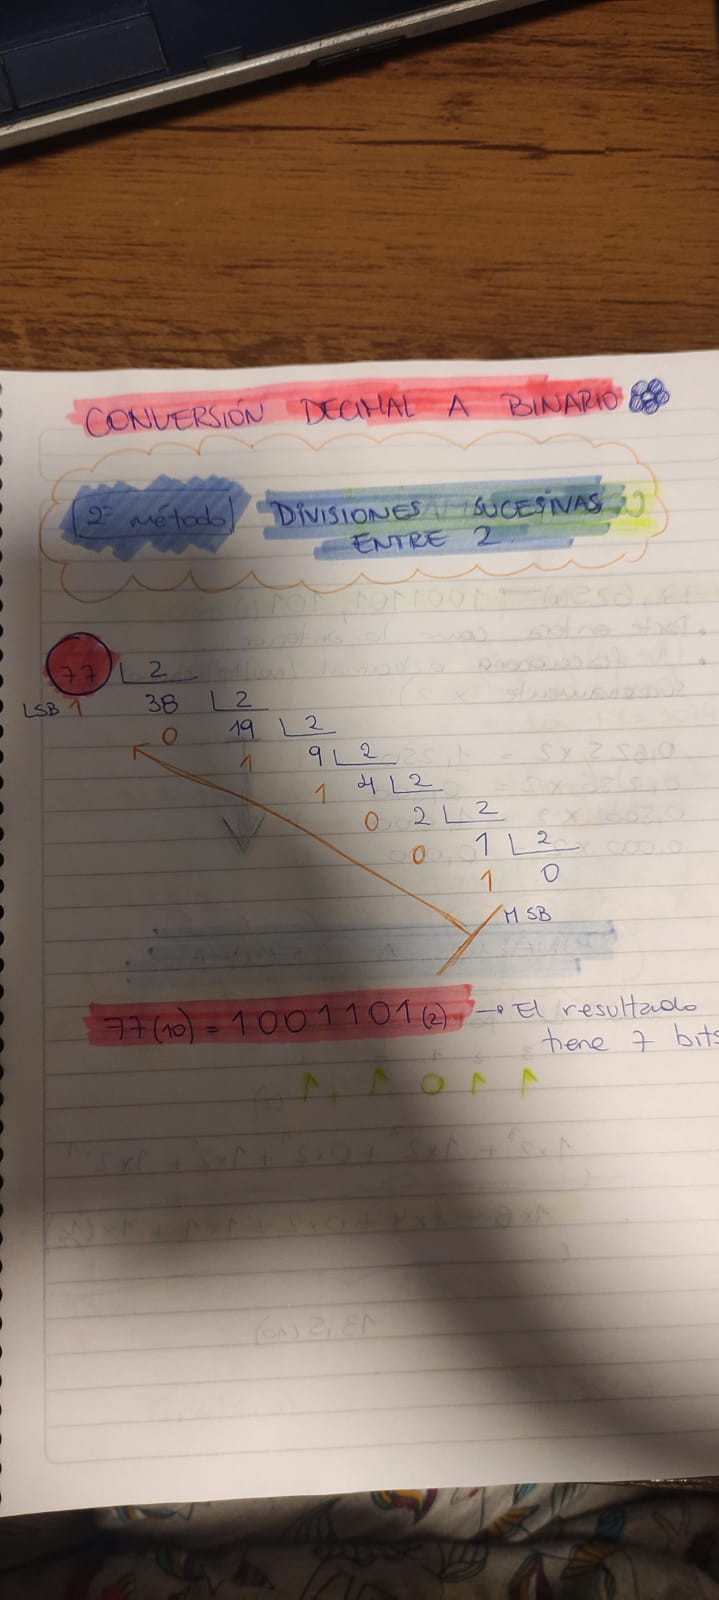 CONVERSIÓN DECIMAL A BINARIO
2º método DIVISIONES SUCESIVAS
ENTRE 2
77 2
LSB 1 38 2
0 19 2
1 9 2
1 4 2
0 2 2
0 1 2
1 0
MSB
77(10) = 1001101(2) → El resultado
tiene 7 bits